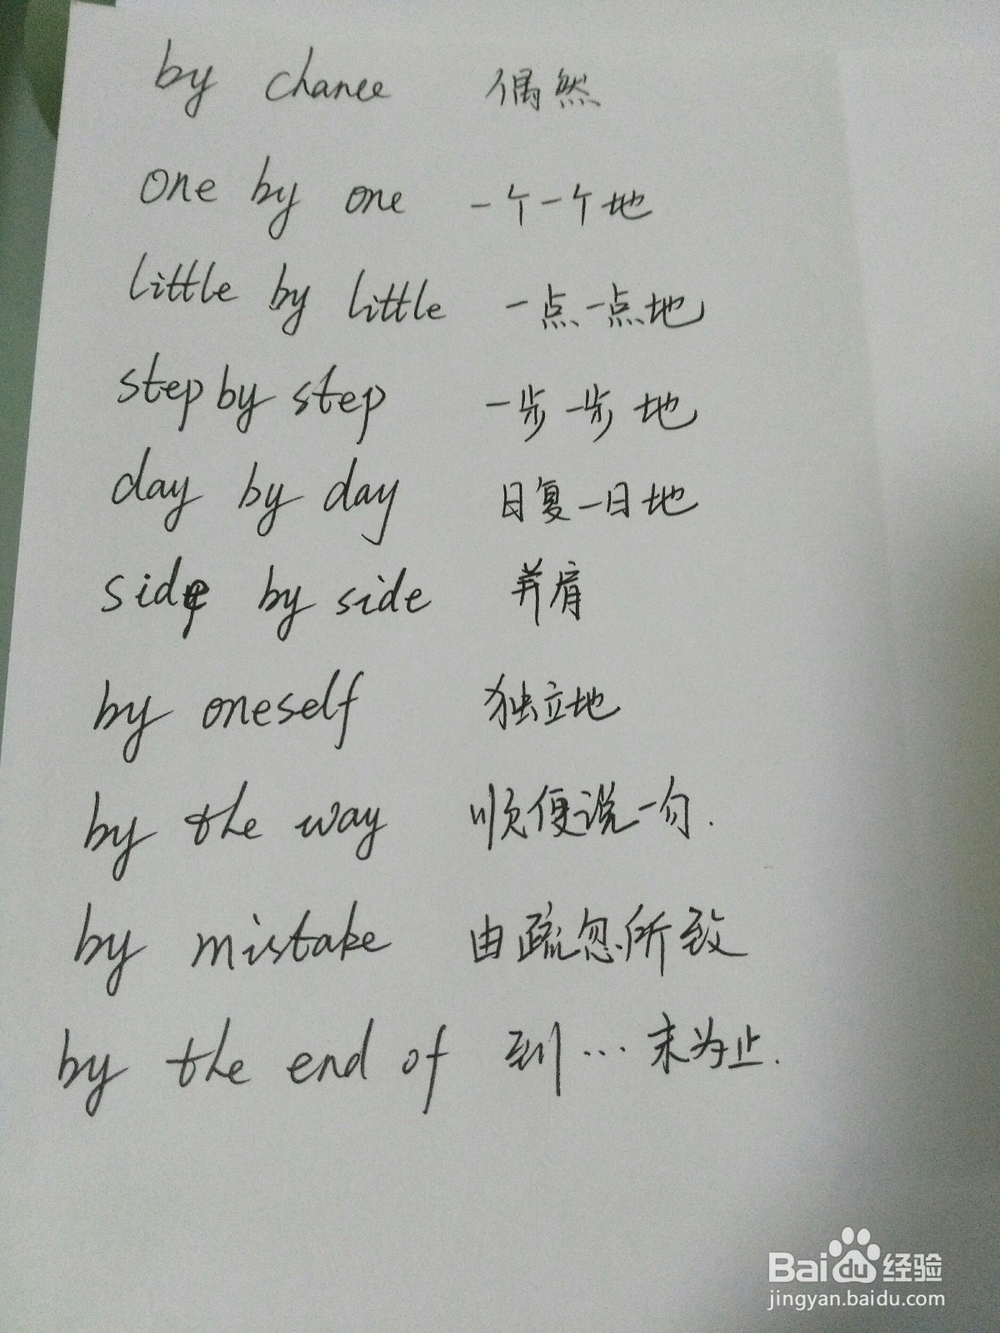 by chance 偶然
one by one 一个一个地
little by little 一点一点地
step by step 一步一步地
day by day 日复一日地
side by side 并肩
by oneself 独立地
by the way 顺便说一句.
by mistake 由疏忽所致
by the end of 到…末为止.
Baidu经验
jingyan.baidu.com